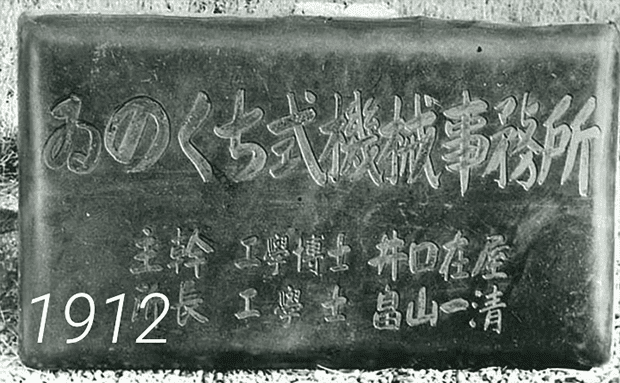 ゐのくち式機械事務所
主幹 工學博士 井口在屋
所長 工學士 畠山一清
1912